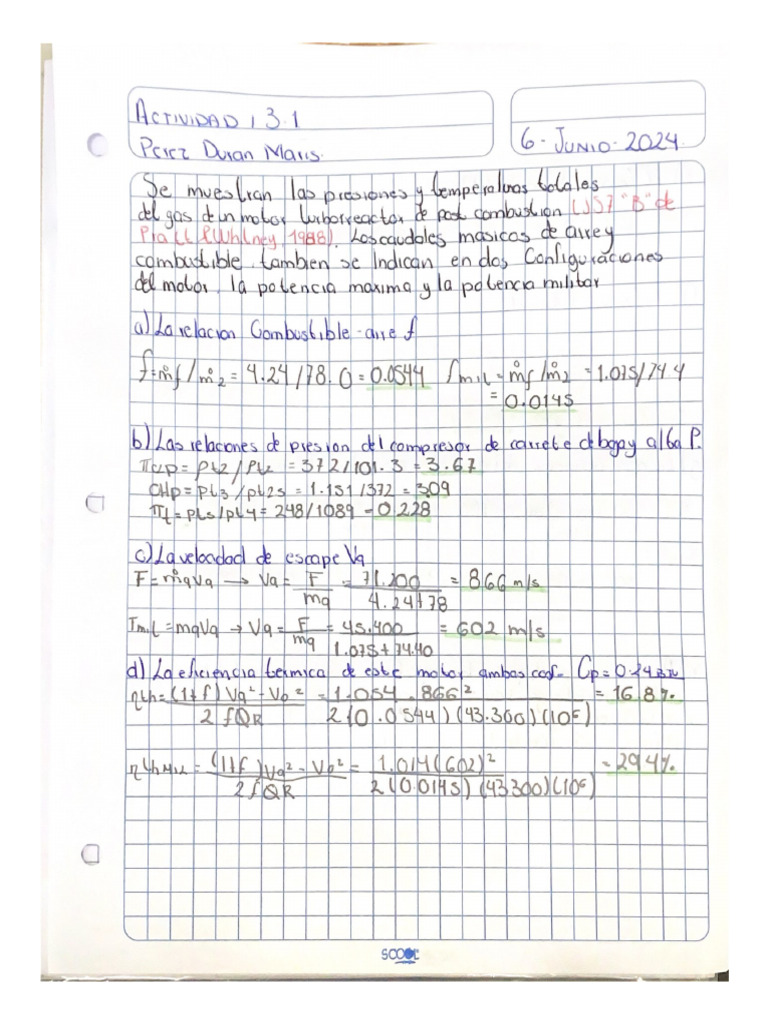 ACTIVIDAD 13.1
Perez Duran Maris.
6-JUNIO-2024
Se muestran las presiones y temperaturas totales
del gas de un motor turborreactor de post combustion (J57 "B" de
Pratt & Whitney, 1988). Los caudales masicos de aire y
combustible tambien se Indican en dos Configuraciones
del motor, la potencia maxima y la potencia militar
a) La relacion Combustible-aire f
f=ṁf/ṁ2 = 4.24/78.0 = 0.0544 fmil = ṁf/ṁ2 = 1.075/74.4
= 0.0145
b) Las relaciones de presion del compresor de carrete de baja y alta P.
= pt2/pt2 = 372/101.3 = 3.67
= pt3/pt2s = 1.151/372 = 309
πt = pts/pt4 = 248/1089 = 0.228
c) La velocidad de escape Vq
F = ṁqVq → Vq = F/mq = 71.200/4.24+78 = 866 m/s
Tmil = mqVq → Vq = F/mq = 45.400/1.075+74.40 = 602 m/s
d) La eficiencia termica de este motor ambas conf- Cp=0.24
ηth = (1+f)Vq²-Vo²/2fQR = 1.054.866²/2(0.0544)(43.300)(10⁶) = 16.8%
ηth Mil = (1+f)Vq²-Vo²/2fQR = 1.014(602)²/2(0.0145)(43300)(10⁶) = 29.4%
SCOOL